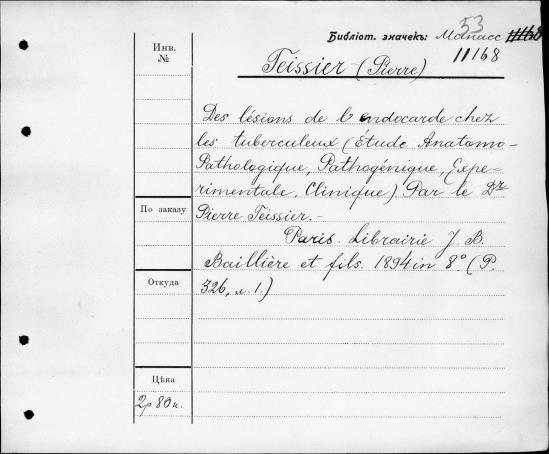 53
Библіот. значекъ: Manacc 11168
11168
Инв. №
Teissier (Pierre)
Des lésions de l'endocarde chez
les tuberculeux (Étude Anatomo-
Pathologique, Pathogénique, Expe-
rimentale, Clinique) Par le Dr
По заказу
Pierre Teissier. -
Paris. Librairie J. B.
Baillière et fils. 1894 in 8° (P.
Откуда
326, л. 1.)
Цѣна
2р 80к.